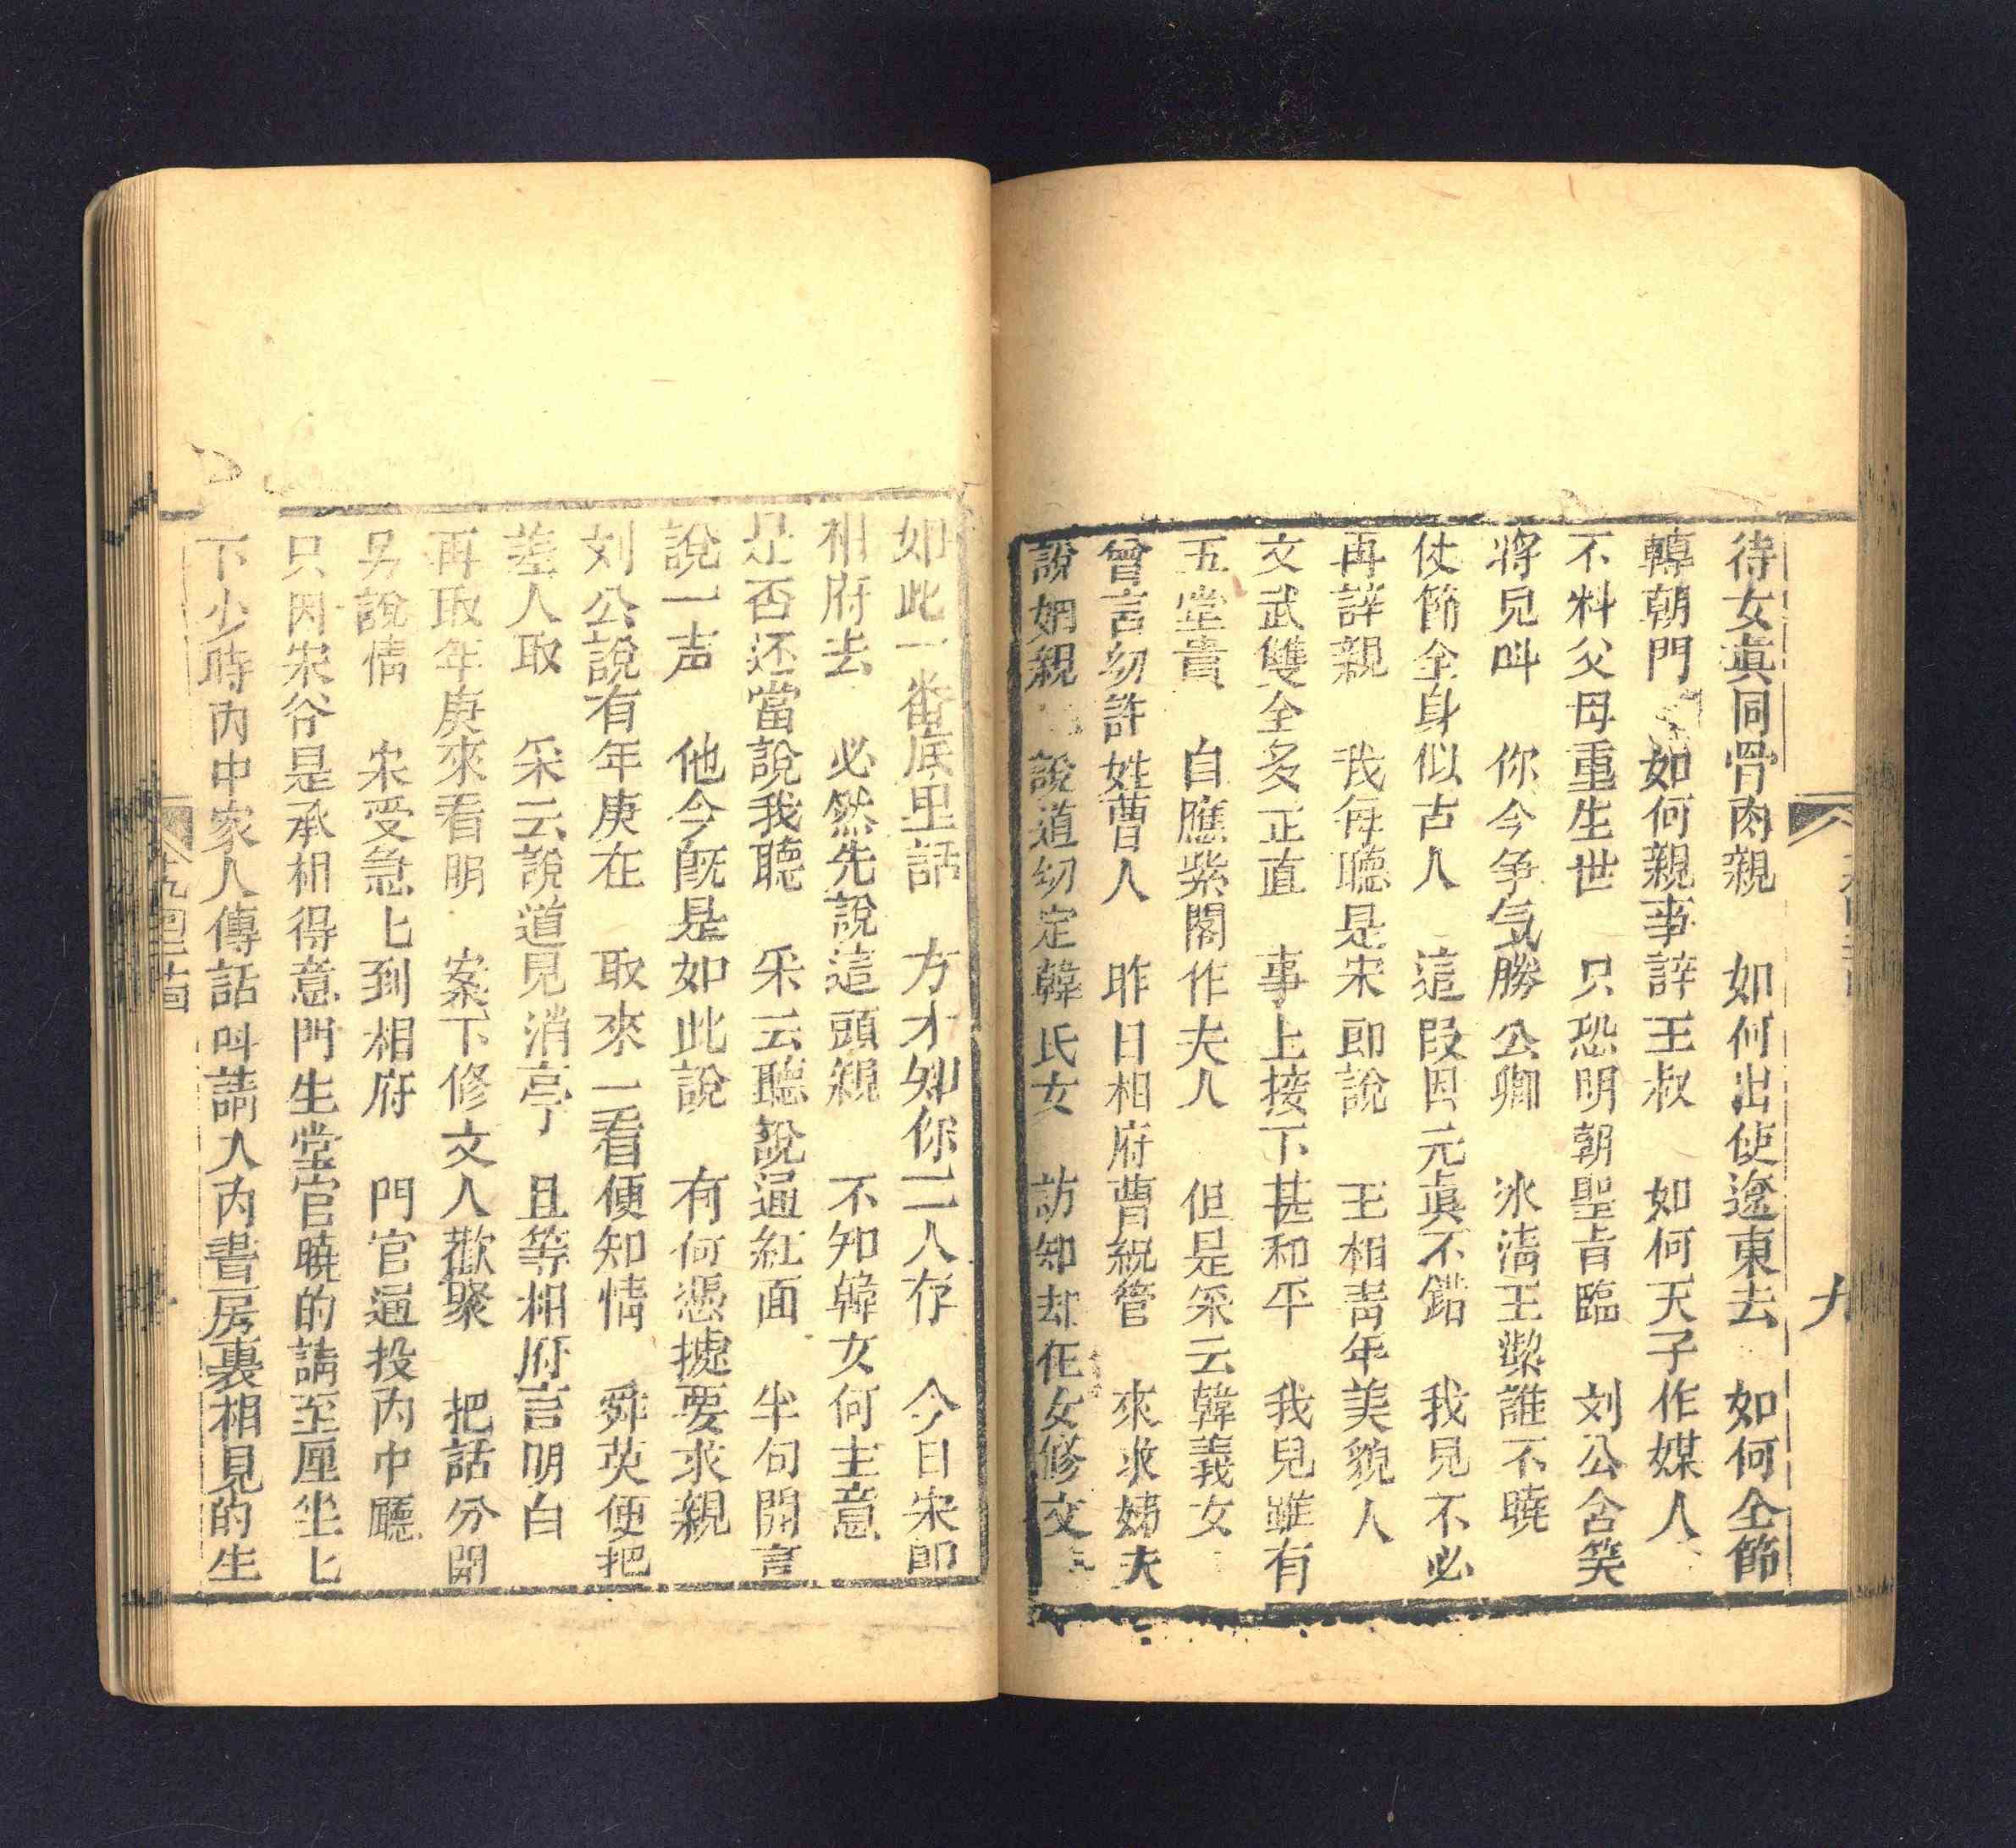 九
待女真同骨肉親 如何出使遼東去 如何全節
轉朝門 如何親事辞王叔 如何天子作媒人
不料父母重生世 只恐明朝聖旨臨 刘公含笑
將兒叫 你今争气勝公卿 冰清玉潔誰不曉
仗節全身似古人 這段因元真不錯 我兒不必
再辞親 我每聽是宋郎說 王相青年美貌人
文武雙全多正直 事上接下甚和平 我兒雖有
五堂貴 自應紫閣作夫人 但是采云韓義女
曾言幼許姓曹人 昨日相府曹統管 來求姊夫
說姻親 說道幼定韓氏女 訪知却在女修文
如此一番底里話 方才知你二人存 今日宋郎
相府去 必然先說這頭親 不知韓女何主意
是否还當說我聽 采云聽說通紅面 半句開言
說一声 他今既是如此說 有何憑據要求親
刘公說有年庚在 取來一看便知情 舜英便把
差人取 采云說道見消亭 且等相府言明白
再取年庚來看明 案下修文人歡聚 把話分開
另說情 宋受急匕到相府 門官通投內中廳
只因宋谷是承相得意門生堂官曉的請至厘坐匕
下少時內中家人傳話叫請入內書房裏相見的生